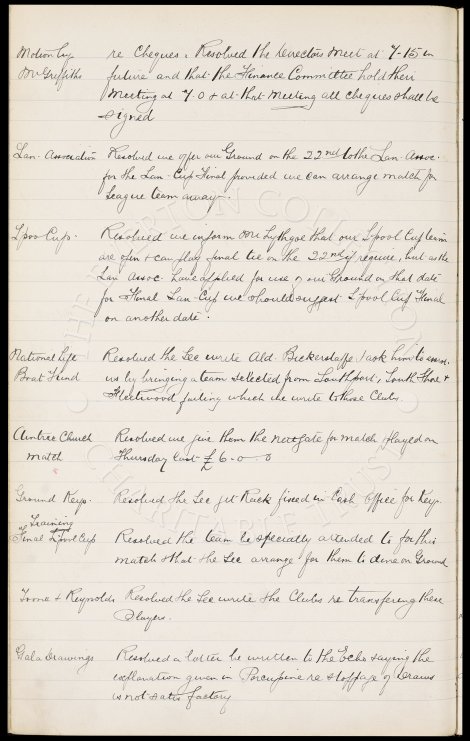 Motion by re Cheques. Resolved the Directors meet at 7-15 in
Mr Griffiths future and that the Finance Committee hold their
Meeting at 7.0 & at that Meeting all cheques shall be
signed
Lan. Association Resolved we offer our Ground on the 22nd to the Lan. Assoc.
for the Lan. Cup Final provided we can arrange match for
League team away.
Lpool Cup. Resolved we inform Mr Lythgoe that our Lpool Cup team
are open & can play final tie on the 22nd if require, but as the
Lan Assoc. have applied for use of our Ground on that date
for Final Lan-Cup we should suggest Lpool Cup Final
on another date.
National Life Resolved the Sec write Ald. Bickerstaffe & ask him to
Boat Fund us by bringing a team selected from Southport, South Shore &
Fleetwood failing which we write to those Clubs.
Aintree Church Resolved we give them the net gate for match played on
Match Thursday last £6-0-0
Ground Keys. Resolved the Sec get Rack fixed in Cash Office for Keys.
Training
Final Lpool Cup Resolved the team be specially attended to for this
match & that the Sec arrange for them to dine on Ground
& Reynolds Resolved the Sec write the Clubs re transferring these
Players.
Gala Drawings Resolved a letter be written to the Echo saying the
explanation given in Porcupine re stoppage of Draws
is not satisfactory
THE EVERTON COLLECTION
CHARITABLE TRUST